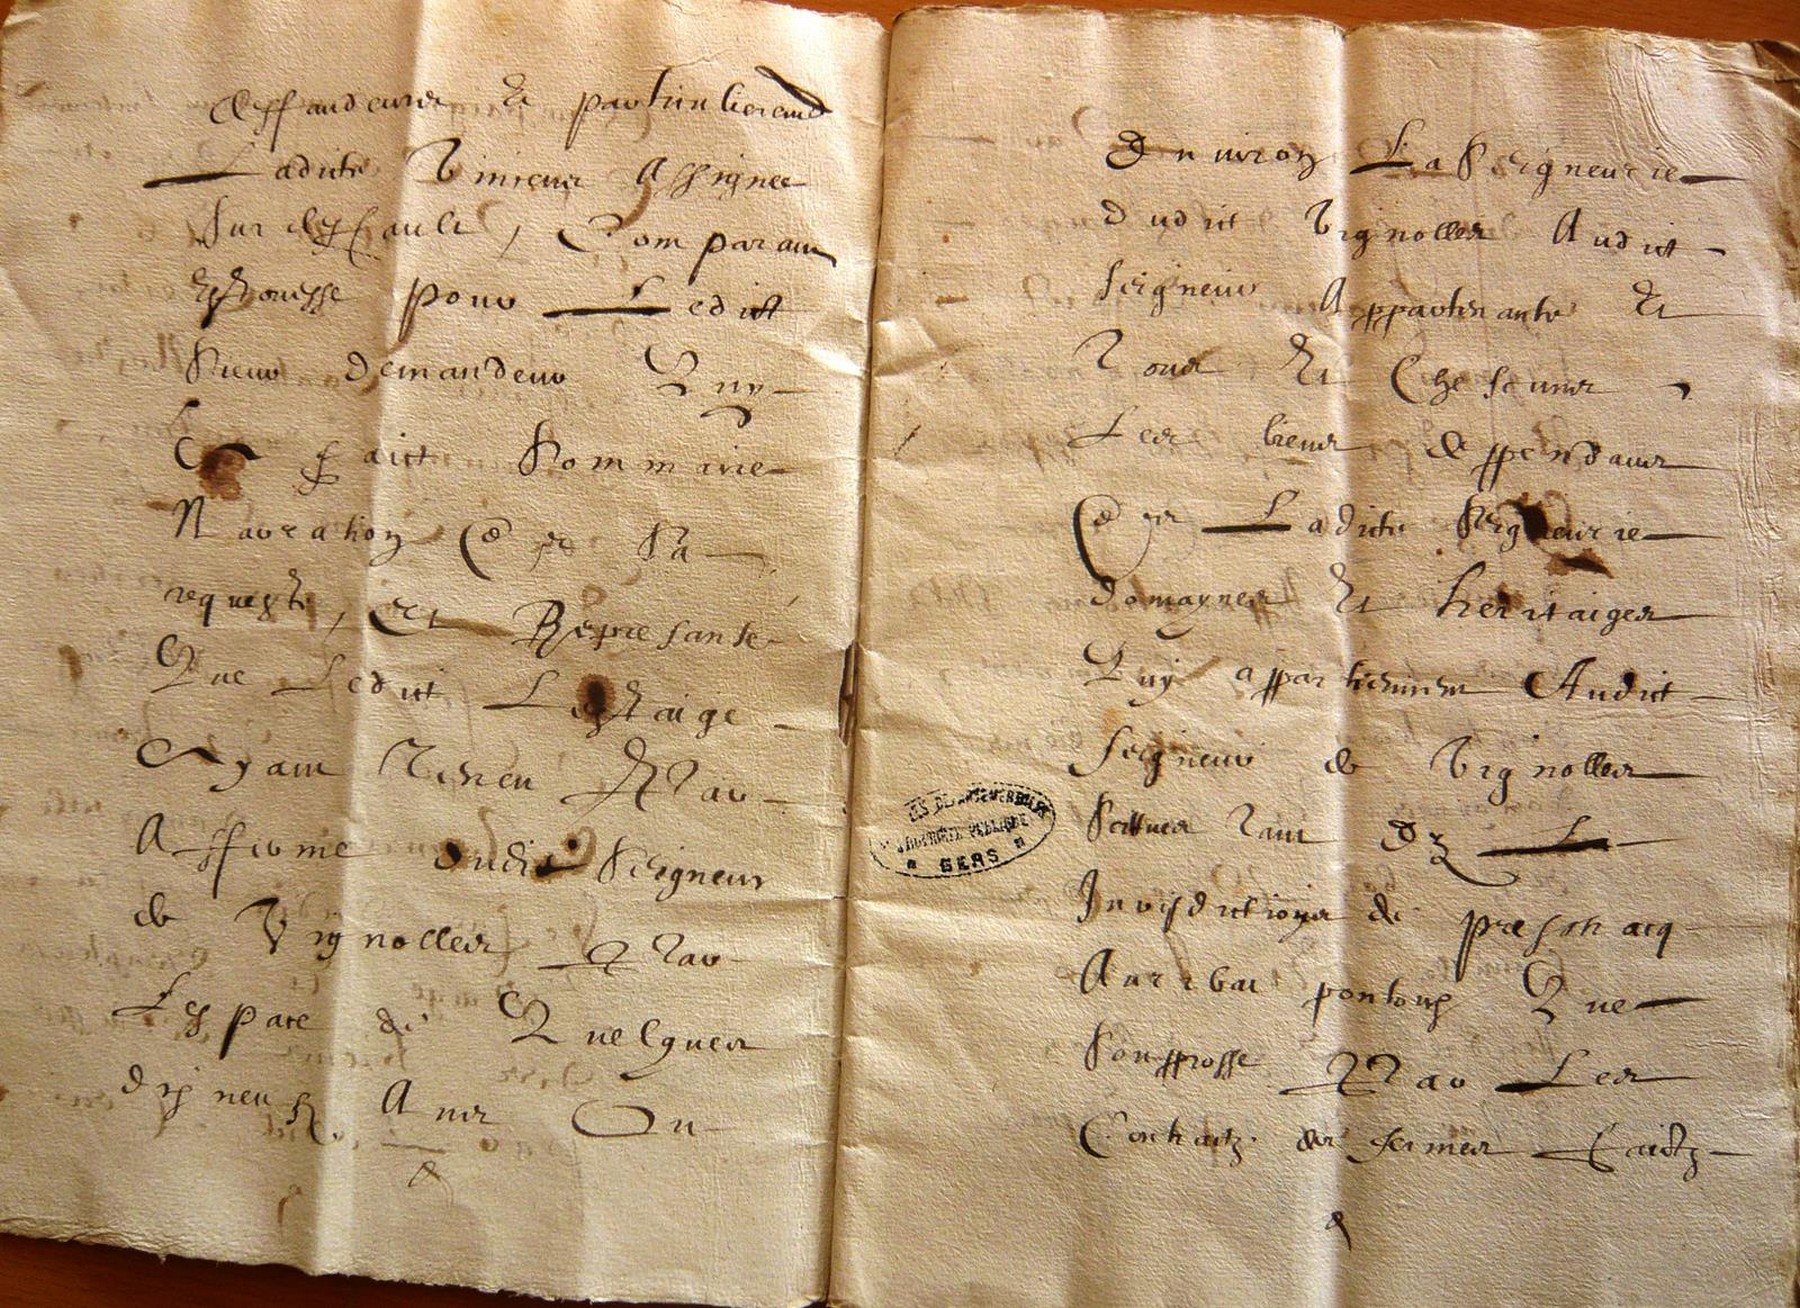 deffandeurs et particulierement
Ladicte Vinieur Assignee
sur deffault, Comparant
pour Ledict
Sieur demandeur Quy
A faict Sommaire
Narration de sa
requeste, Et Represante
Que Ledict Lestaige
Ayant Teneu Par
Afferme dudict Seigneur
de Vignolles Par
Lespace de Quelques
dixneuf Ans Ou
Environ La Seigneurie
dudict Vignolles Audict
Seigneur Appartenante Et
Tous Et Chescuns
Les biens deppendans
de Ladicte Seigneurie
domaynes Et heritaiges
Quy appartiennent Audict
Seigneur de Vignolles
Scitues Tant dez
Jurisdictions de preschacq
Auribat pontoux Que
Sonprosse Par Les
Contractz de fermes Faictz
GERS